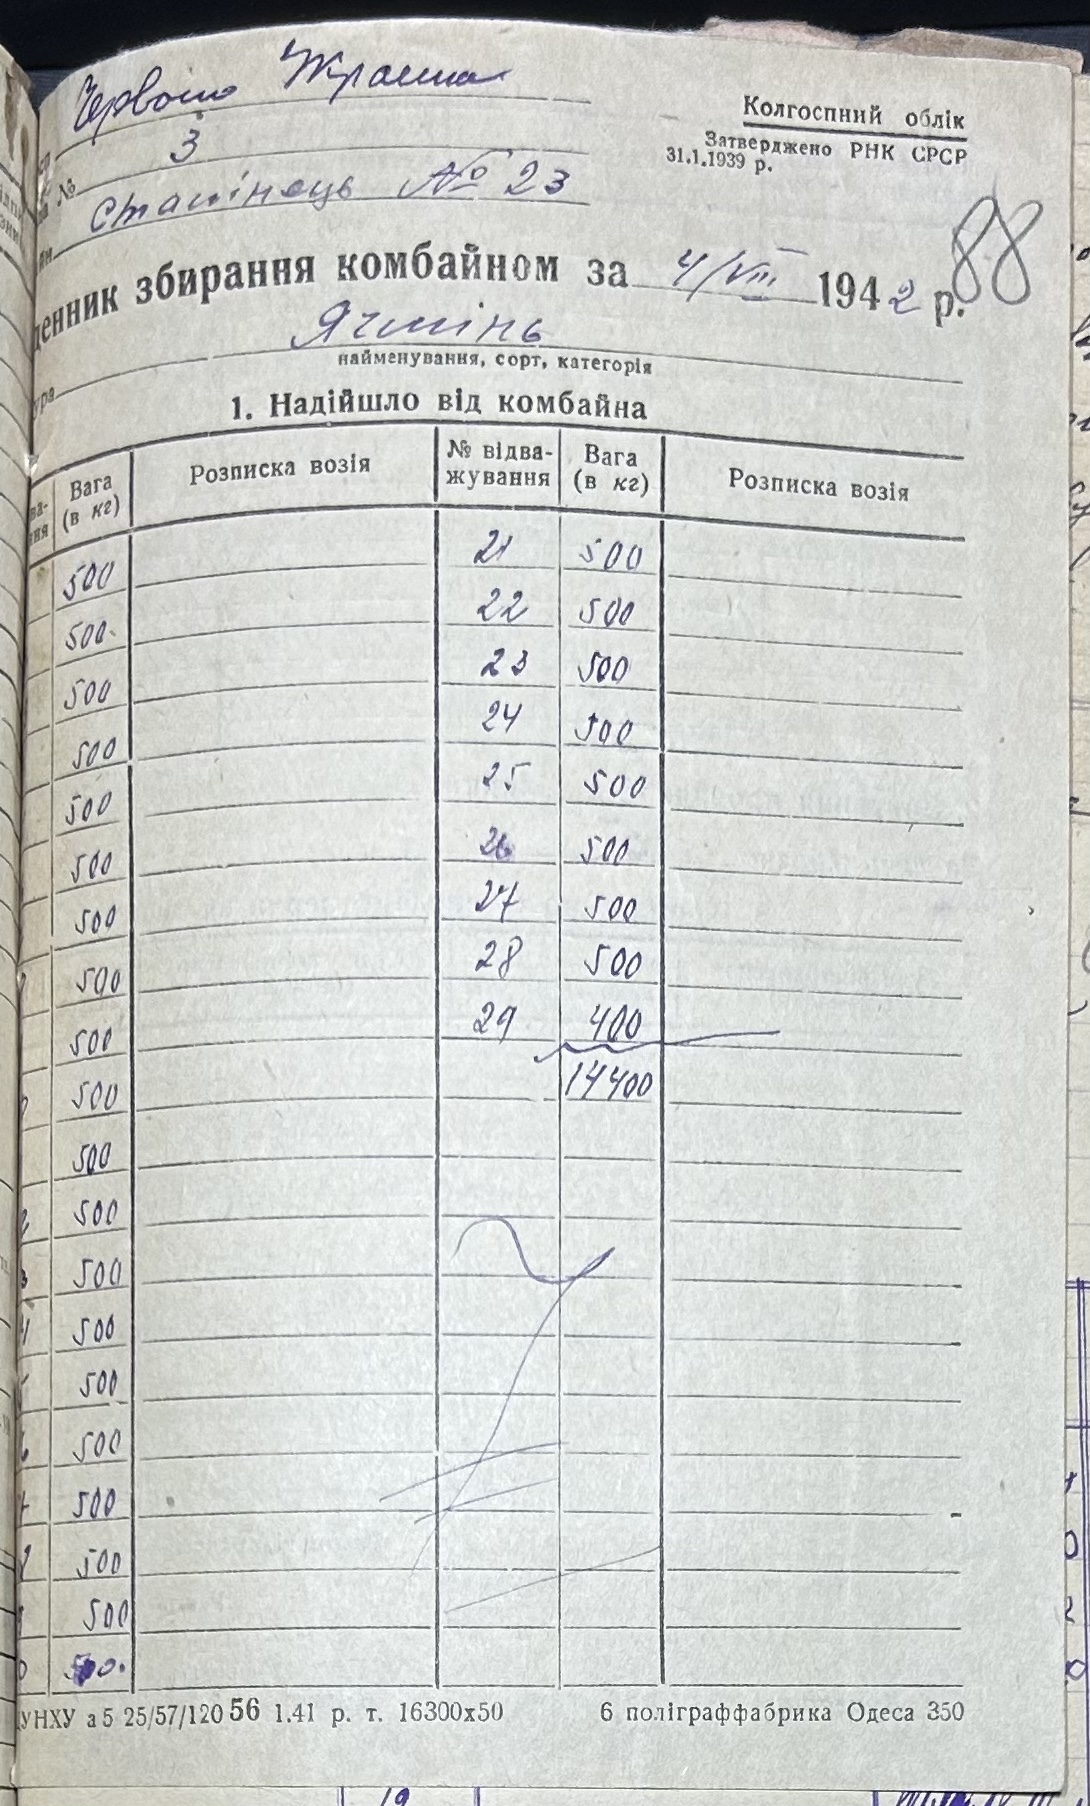 Червона Україна
Колгоспний облік
Затверджено РНК СРСР
31.1.1939 р.
№ 3
Сталінець № 23
88
денник збирання комбайном за 4/VIII 1942 р.
ура Ячмінь
найменування, сорт, категорія
1. Надійшло від комбайна
Вага (в кг) Розписка возія № відва-жування Вага (в кг) Розписка возія
500 21 500
500 22 500
500 23 500
500 24 500
500 25 500
500 26 500
500 27 500
500 28 500
500 29 400
500 14400
500
500
500
500
500
500
500
500
500
500
УНХУ а5 25/57/120 56 1.41 р. т. 16300х50 6 поліграффабрика Одеса 350
19